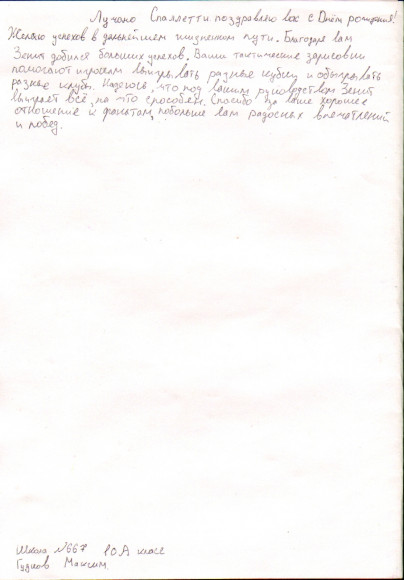 Лучано Спаллетти поздравляю вас с Днём рождения!
Желаю успехов в дальнейшем жизненном пути. Благодаря вам
Зенит добился больших успехов. Ваши тактические зарисовки
помогают игрокам выигрывать разные кубки и обыгрывать
разные клубы. Надеюсь, что под вашим руководством Зенит
выиграет всё, на что способен. Спасибо за ваше хорошее
отношение к фанатам, побольше вам радостных впечатлений
и побед.
Школа №667 10А класс
Максим.